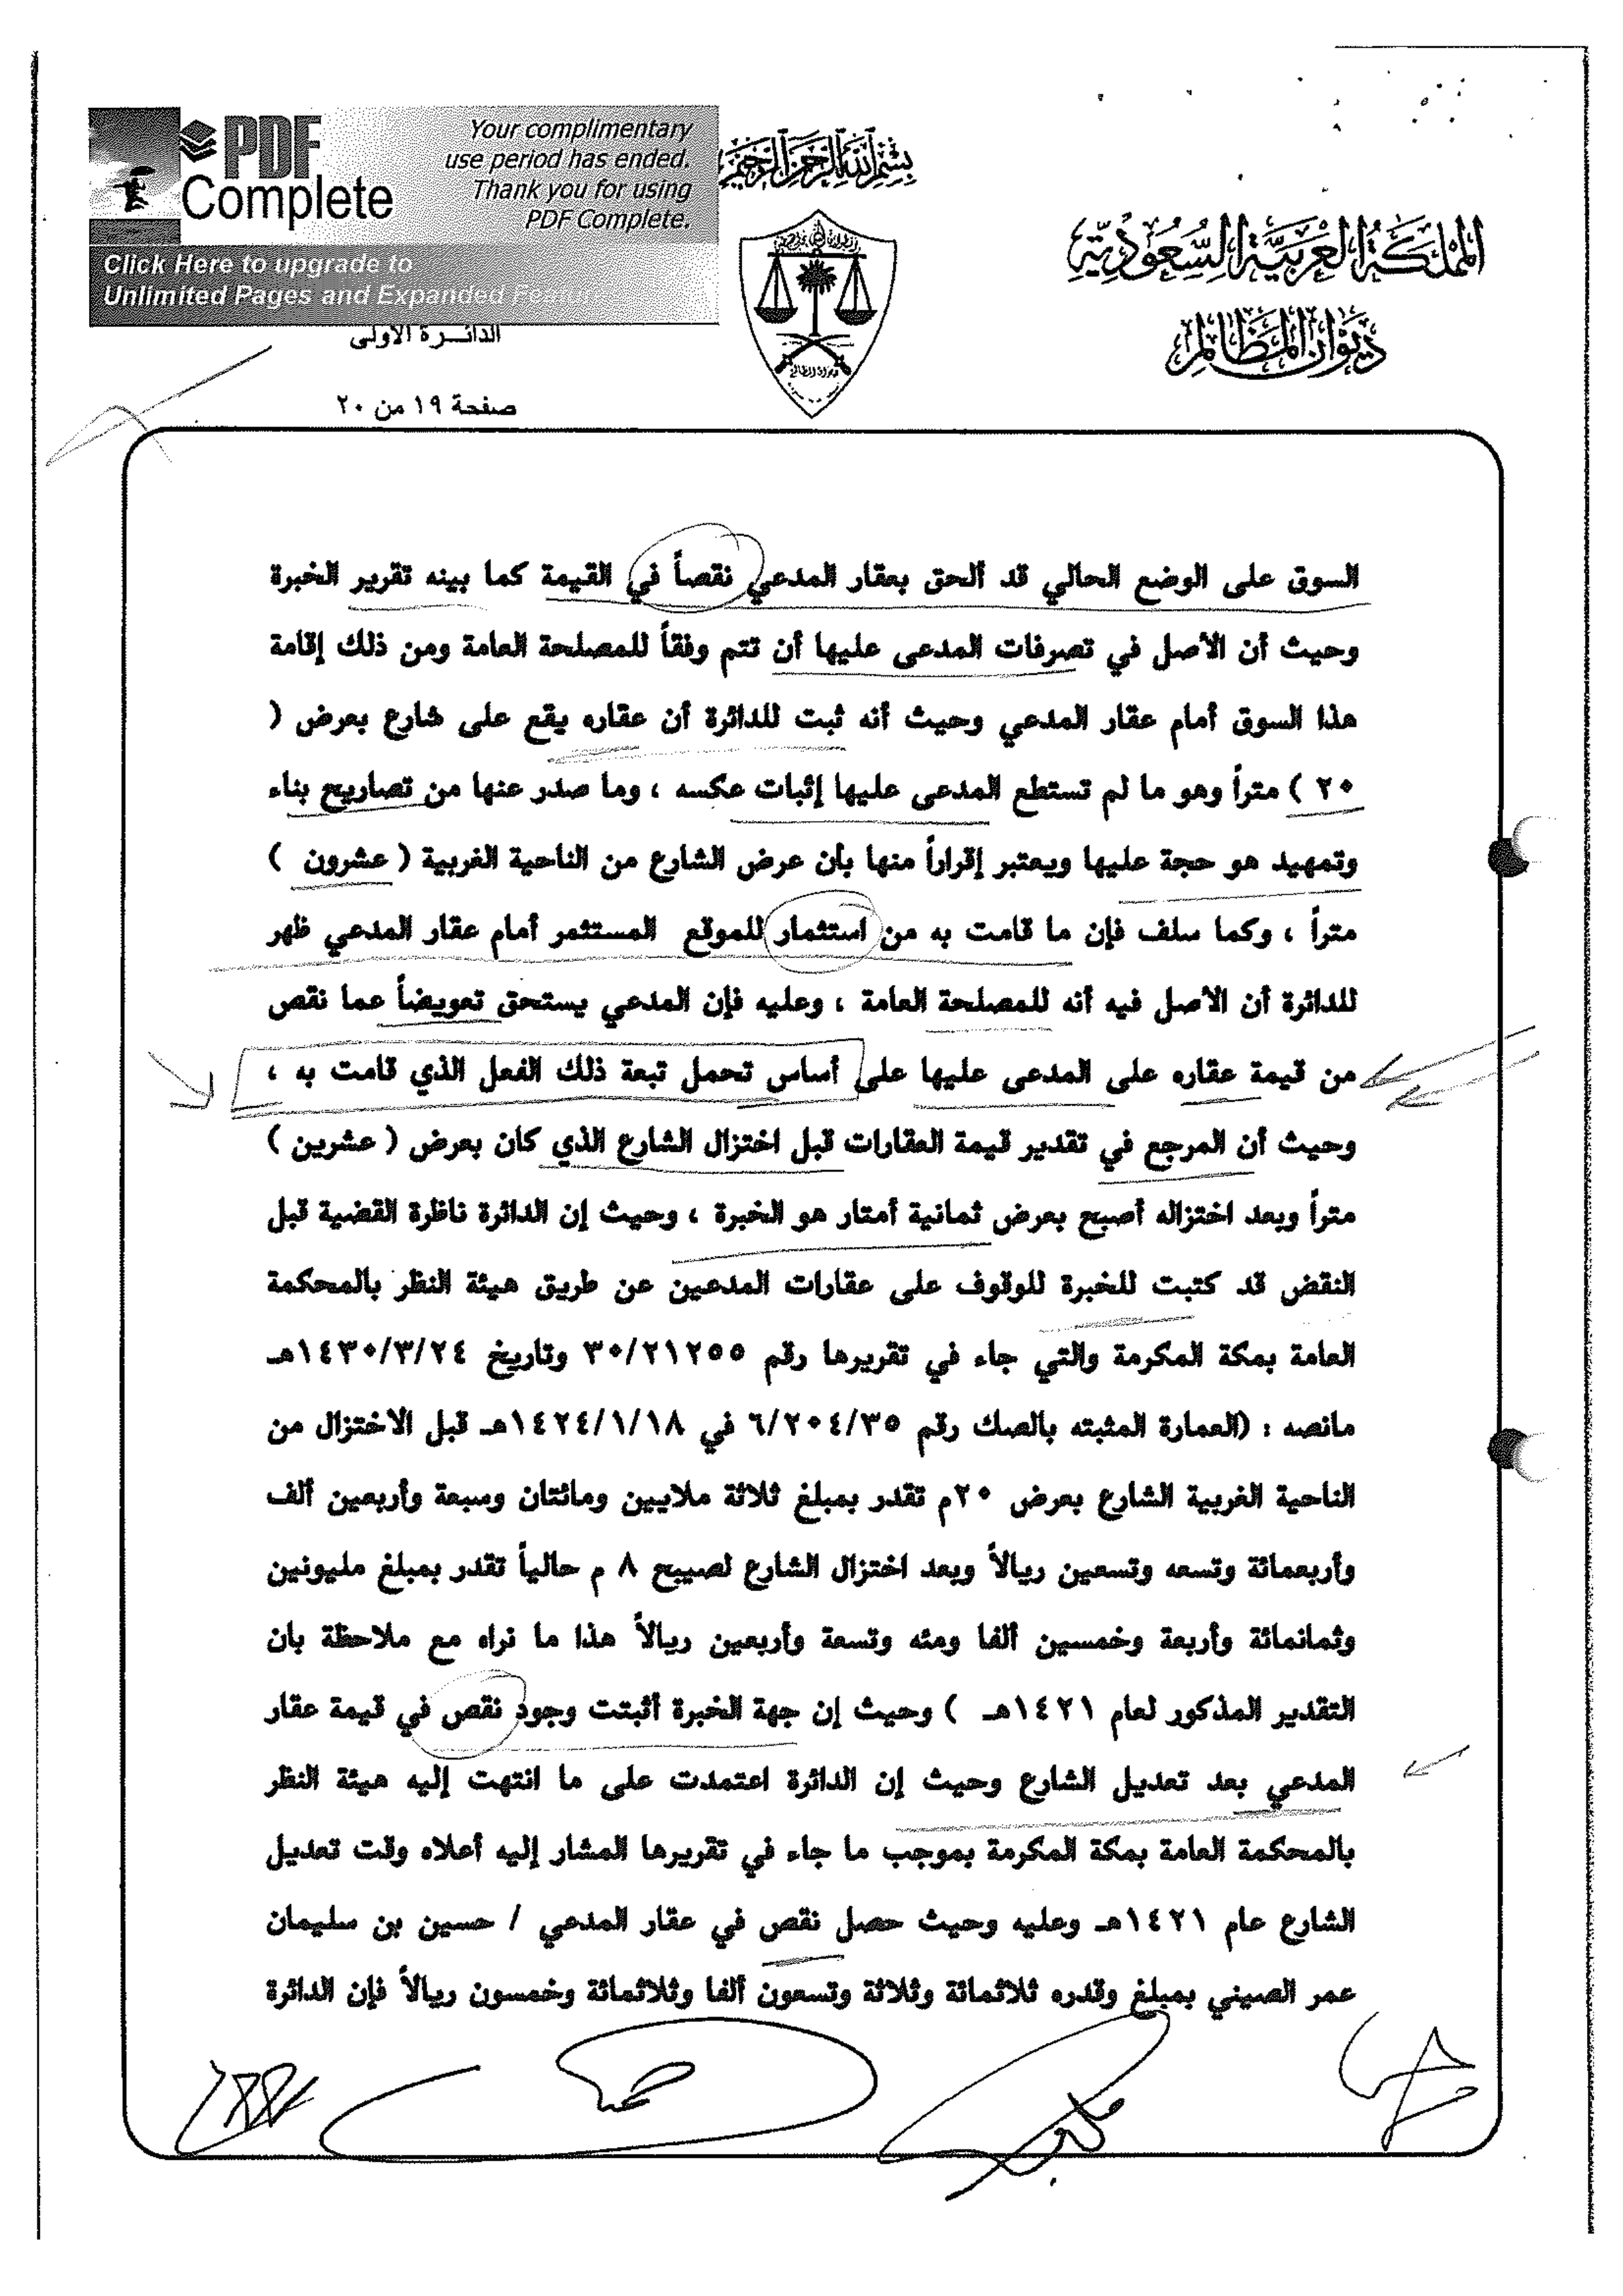 PDF Complete
Your complimentary
use period has ended.
Thank you for using
PDF Complete.
Click Here to upgrade to
Unlimited Pages and Expanded Features
بسم الله الرحمن الرحيم
المملكة العربية السعودية
ديوان المظالم
الدائرة الأولى
صفحة ١٩ من ٢٠
السوق على الوضع الحالي قد ألحق بعقار المدعي نقصاً في القيمة كما بينه تقرير الخبرة
وحيث أن الأصل في تصرفات المدعى عليها أن تتم وفقاً للمصلحة العامة ومن ذلك إقامة
هذا السوق أمام عقار المدعي وحيث أنه ثبت للدائرة أن عقاره يقع على شارع بعرض (
٢٠ ) متراً وهو ما لم تستطع المدعى عليها إثبات عكسه ، وما صدر عنها من تصاريح بناء
وتمهيد هو حجة عليها ويعتبر إقراراً منها بأن عرض الشارع من الناحية الغربية ( عشرون )
متراً ، وكما سلف فإن ما قامت به من استثمار للموقع المستثمر أمام عقار المدعي ظهر
للدائرة أن الأصل فيه أنه للمصلحة العامة ، وعليه فإن المدعي يستحق تعويضاً عما نقص
من قيمة عقاره على المدعى عليها على أساس تحمل تبعة ذلك الفعل الذي قامت به ،
وحيث أن المرجع في تقدير قيمة العقارات قبل اختزال الشارع الذي كان بعرض ( عشرين )
متراً وبعد اختزاله أصبح بعرض ثمانية أمتار هو الخبرة ، وحيث إن الدائرة ناظرة القضية قبل
النقض قد كتبت للخبرة للوقوف على عقارات المدعين عن طريق هيئة النظر بالمحكمة
العامة بمكة المكرمة والتي جاء في تقريرها رقم ٣٠/٢١٢٥٥ وتاريخ ١٤٣٠/٣/٢٤هـ
مانصه : (العمارة المثبته بالصك رقم ٦/٢٠٤/٣٥ في ١٤٢٤/١/١٨هـ قبل الاختزال من
الناحية الغربية الشارع بعرض ٢٠م تقدر بمبلغ ثلاثة ملايين ومائتان وسبعة وأربعين ألف
وأربعمائة وتسعه وتسعين ريالاً وبعد اختزال الشارع لصيبح ٨ م حالياً تقدر بمبلغ مليونين
وثمانمائة وأربعة وخمسين ألفا ومئه وتسعة وأربعين ريالاً هذا ما نراه مع ملاحظة بان
التقدير المذكور لعام ١٤٢١هـ ) وحيث إن جهة الخبرة أثبتت وجود نقص في قيمة عقار
المدعي بعد تعديل الشارع وحيث إن الدائرة اعتمدت على ما انتهت إليه هيئة النظر
بالمحكمة العامة بمكة المكرمة بموجب ما جاء في تقريرها المشار إليه أعلاه وقت تعديل
الشارع عام ١٤٢١هـ وعليه وحيث حصل نقص في عقار المدعي / حسين بن سليمان
عمر الصيني بمبلغ وقدره ثلاثمائة وثلاثة وتسعون ألفا وثلاثمائة وخمسون ريالاً فإن الدائرة